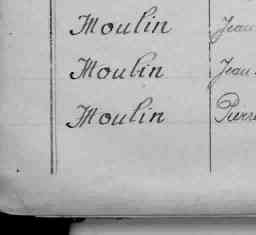 Moulin Jean
Moulin Jean
Moulin Pierre